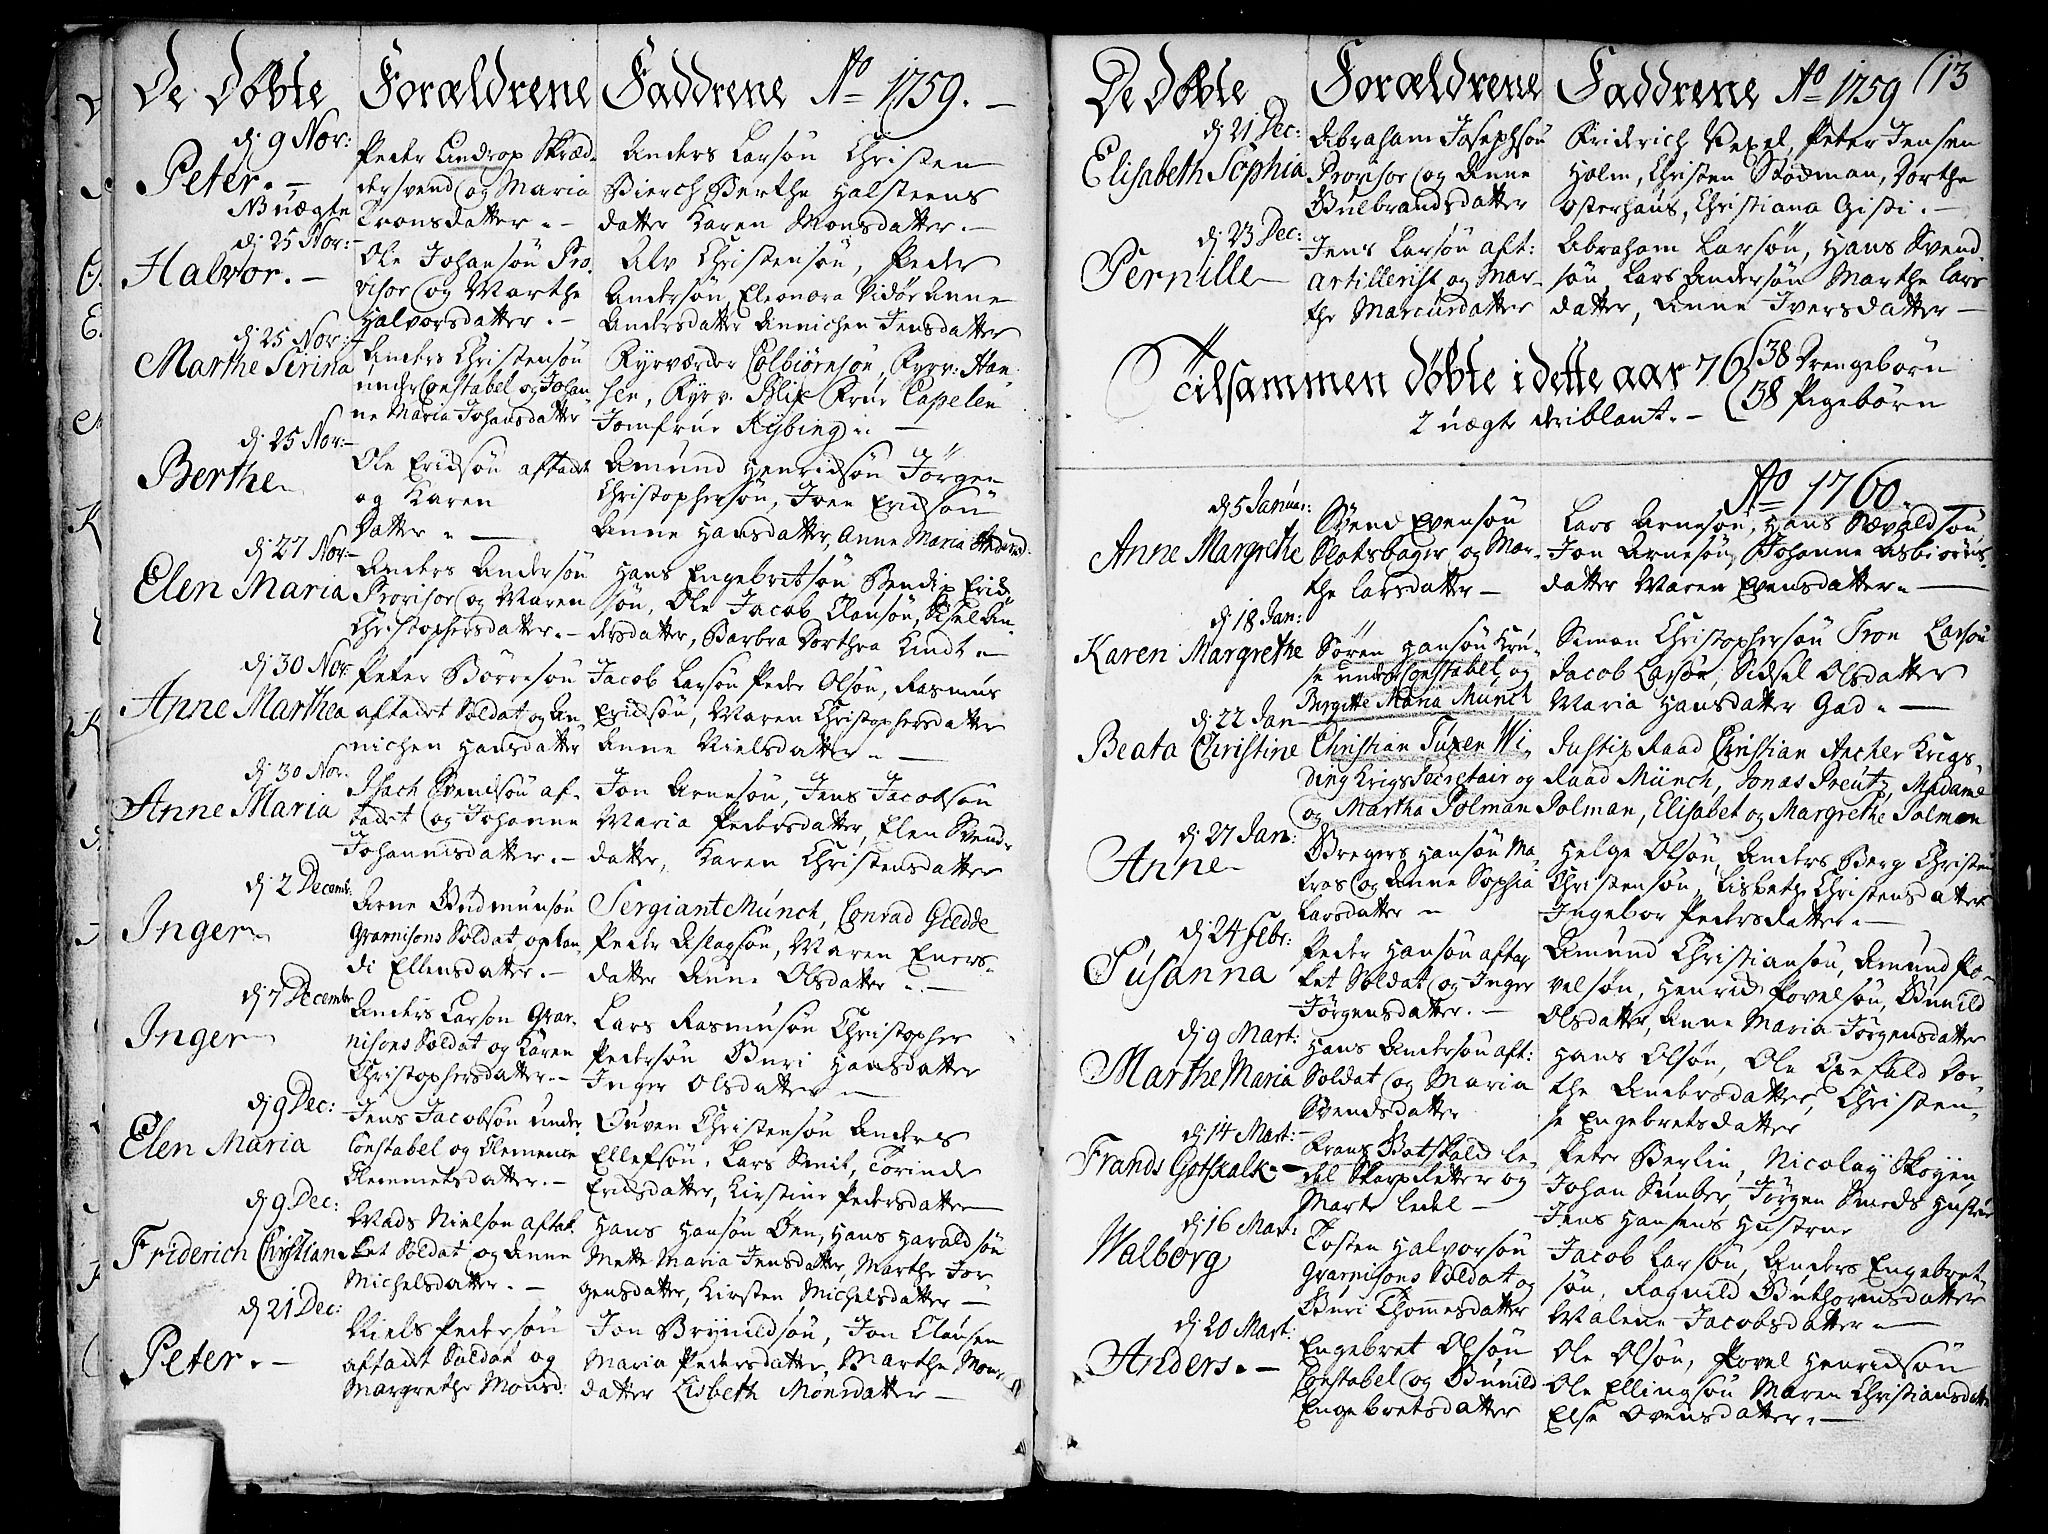 De Döbte Forældrene Faddrene Aō 1759. –
dj 9 Nov:
Peter. –
NB uægte
Peder Lindrop Skræd-
dersvend og Maria
Tronsdatter. –
Anders Larsøn Christen
Bierch Berthe Halsteens
datter Karen Monsdatter. –
dj 25 Nov: –
Halvor. –
Ole Johansøn Pro-
visor og Marthe
Halvorsdatter. –
Alv Christensøn, Peder
Andersøn, Eleonora Vidør Anne
Andersdatter Annichen Jensdatter
dj 25 Nov: –
Marthe Serina
Anders Christensøn
under Constabel og Johan-
ne Maria Johansdatter
Fyrværder Colbiørnsøn, Fyrv: Han-
sen, Fyrv. Blix Frue Capelen
Jomfrue Rÿbing. –
dj 25 Nov: –
Berthe
Ole Erichsøn aftadt
og Karen
Datter. –
Amund Henrichsøn Jörgen
Christophersøn, Iver Erichsøn
Anne Hansdatter, Anne Maria Andersd:
dj 27 Nov: –
Elen Maria
Anders Andersøn
Provisor og Maren
Christophersdatter. –
Hans Engebretsøn Bendix Erich
søn, Ole Jacob Clausøn, Sisel An-
dersdatter, Barbra Dorthea Lindt –
dj 30 Nov
Anne Marthea
Peter Börresøn
aftadt Soldat og An-
nichen Hansdatter
Jacob Larsøn Peder Olsøn, Rasmus
Erichsøn, Maren Christophersdatter
Anne Nielsdatter. –
dj 30 Nov.
Anne Maria
Isach Svendsøn af-
tadt og Johanne
Johannisdatter. –
Jon Arnesøn, Jens Jacobsøn
Maria Pedersdatter, Elen Svends-
datter, Karen Christensdatter
dj 2 Decemb:
Inger
Arne Gudmunsøn
Guarnisons Soldat, og Ran-
di Ellensdatter. –
Sergiant Münch, Conrad Gedde
Peder Aslagsøn, Maren Eners-
datter Anne Olsdatter. –
dj 7 Decembr
Inger
Anders Larsøn Guar-
nisons Soldat og Karen
Christophersdatter. –
Lars Rasmusøn Christopher
Pedersøn Guri Hansdatter
Inger Olsdatter –
dj 9 Dec:
Elen Maria
Jens Jacobsøn under
Constabel og Clemence
Clemmetsdatter. –
Ouven Christensøn Anders
Ellefsøn, Lars Smit, Torine
Erichsdatter, Kirstine Pedersdatter
dj 9 Dec:
Friderich Christian
Mads Nielsøn aftak-
ket Soldat og Anne
Michelsdatter. –
Hans Hansøn Øen, Hans Harald søn
Mette Maria Jensdatter, Marthe Jör-
gensdatter, Kirsten Michelsdatter –
dj 21 Dec:
Peter. –
Niels Pedersøn
aftadt Soldat og
Margrethe Monsd:
Jon Brÿnildsøn, Jon Clausen
Maria Pedersdatter, Marthe Mons
datter Lisbeth Mónsdatter –
De Döbte Forældrene Faddrene Aō 1759 (13
dj 21 Dec:
Elisabeth Sophia
Abraham Josephsøn
Provisor og Anne
Gulbrandsdatter
Friderich Vexel, Peter Jensen
Holm, Christen Stodman, Dorthe
Osterhaus, Christiana Gisti. –
dj 23 Dec:
Pernille
Jens Larsøn aft:
artillerist, og Mar-
the Marcusdatter
Abraham Larsøn, Hans Svend-
søn, Lars Andersøn Marthe Lars
datter, Anne Iversdatter –
Tilsammen döbte i dette aar 76 (38 Drengebörn
(38 Pigebörn
2 uægte deriblant. –
Aō 1760.
dj 5 Januar:
Anne Margrethe
Svend Evensøn
Slotsbager, og Mar-
the Larsdatter –
Lars Arnesøn, Hans Sævald søn
Jon Arnesøn, Johanne Asbiörns-
datter Maren Evensdatter. –
dj 18 Jan:
Karen Margrethe
Sören Hansøn Kru-
se under Constabel, og
Birgitte Maria Munch
Simon Christophersøn Tron Larsøn
Jacob Larsøn, Sidsel Olsdatter
Maria Hansdatter Gad. –
dj 22 Jan –
Beata Christine
Christian Tuxen Wi-
ding Krigs Secretair og
og Martha Polman
Justiz Raad Christian Ancher Krigs-
Raad Münch, Jonas Preutz, Madame
Polman, Elisabet og Margrethe Polman
dj 27 Jan:
Anne
Gregers Hansøn Ma-
tros og Anne Sophia
Larsdatter –
Helge Olsøn, Anders Berg Christen
Christensøn, Lisbethe Christensdatter
Ingebor Pedersdatter. –
dj 24 Febr:
Susanna
Peder Hansøn aftak-
ket Soldat og Inger
Jörgensdatter. –
Amund Christiansøn, Amund Po-
velsøn, Henrich Povelsøn, Gunild
Olsdatter, Anne Maria Jörgensdatter
dj 9 Mart:
Marthe Maria
Hans Andersøn aft:
Soldat og Maria
Svendsdatter
Hans Olsøn, Ole Opefald Dor-
the Andersdatter, Christen-
se Engebretsdatter
dj 14 Mart: –
Frands Gotskalk. –
Frans Gotskald Le-
del Skarpretter og
Marte Ledel –
Peter Berlin, Nicolaÿ Skoÿen
Johan Sunder, Jörgen Smeds Hustrue
Jens Hansens Hustrue
dj 16 Mart:
Walborg
Tosten Halvorsøn
Guarnisons Soldat og
Guri Thommesdatter
Jacob Larsøn, Anders Engebret-
søn, Ragnild Guthormsdatter
Malene Jacobsdatter. –
dj 20 Mart:
Anders. –
Engebret Olsøn
Constabel og Gunild
Engebretsdatter
Ole Olsøn, Povel Henrichsøn
Ole Ellingsøn Maren Christiansdatter
Else Ovensdatter. –